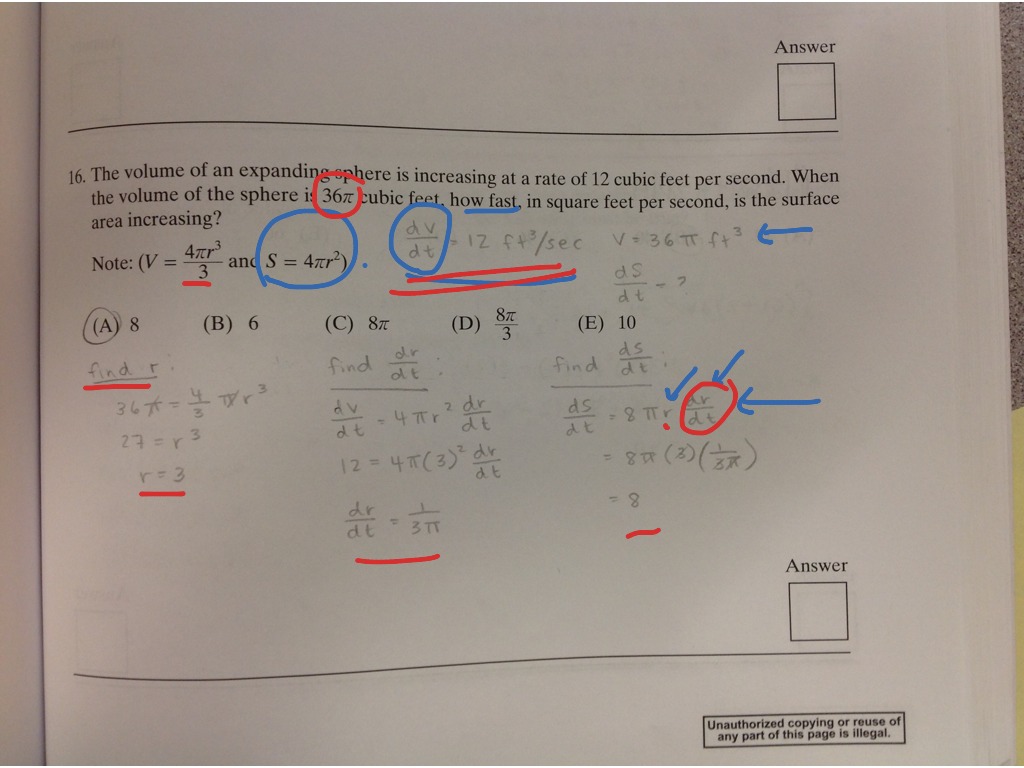 Answer
16. The volume of an expanding sphere is increasing at a rate of 12 cubic feet per second. When
the volume of the sphere is 36π cubic feet, how fast, in square feet per second, is the surface
area increasing?
dv/dt = 12 ft³/sec V = 36π ft³
Note: (V = 4πr³/3 and S = 4πr²).
dS/dt = ?
(A) 8 (B) 6 (C) 8π (D) 8π/3 (E) 10
find r:
36π = 4/3 πr³
27 = r³
r = 3
find dr/dt:
dv/dt = 4πr² dr/dt
12 = 4π(3)² dr/dt
dr/dt = 1/3π
find dS/dt:
dS/dt = 8πr · dr/dt
= 8π(3)(1/3π)
= 8
Answer
Unauthorized copying or reuse of
any part of this page is illegal.